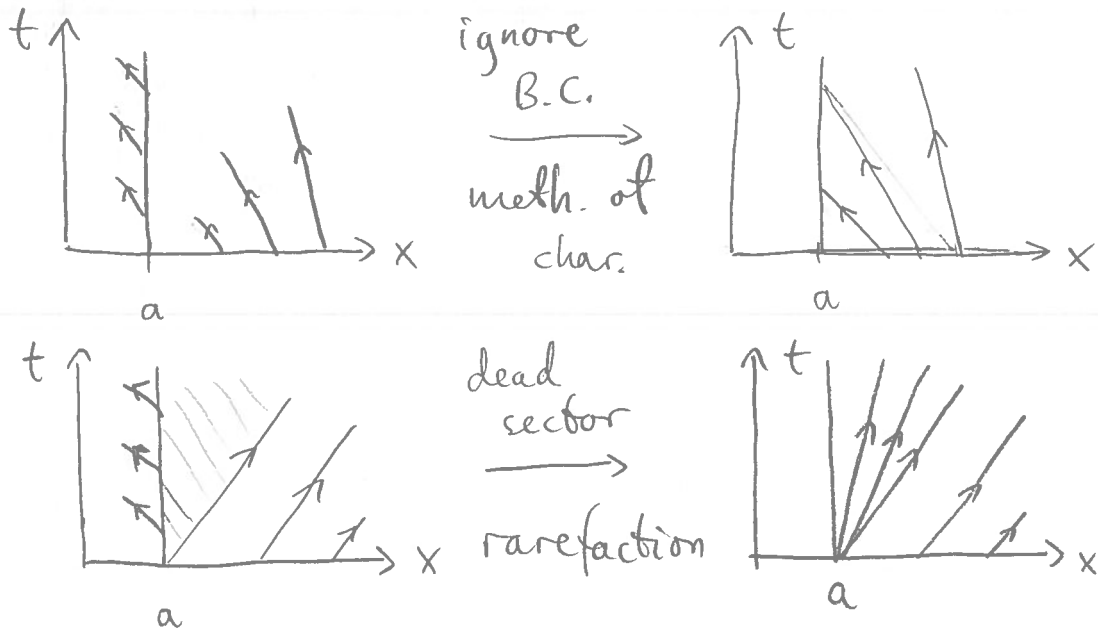 t
ignore
B.C.
meth. of
char.
x
a
t
x
a
t
dead
sector
rarefaction
x
a
t
x
a